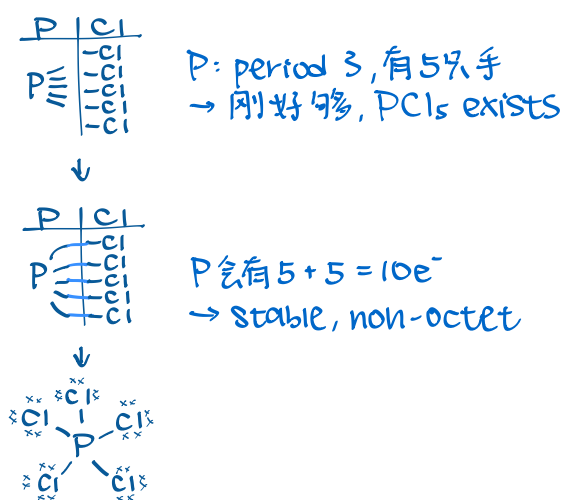 P Cl
-Cl
-Cl
P -Cl
-Cl
-Cl
P: period 3, 有5只手
→ 刚好够, PCl₅ exists
↓
P Cl
-Cl
-Cl
P -Cl
-Cl
-Cl
P会有5+5=10e⁻
→ stable, non-octet
↓
Cl
Cl Cl
P
Cl Cl